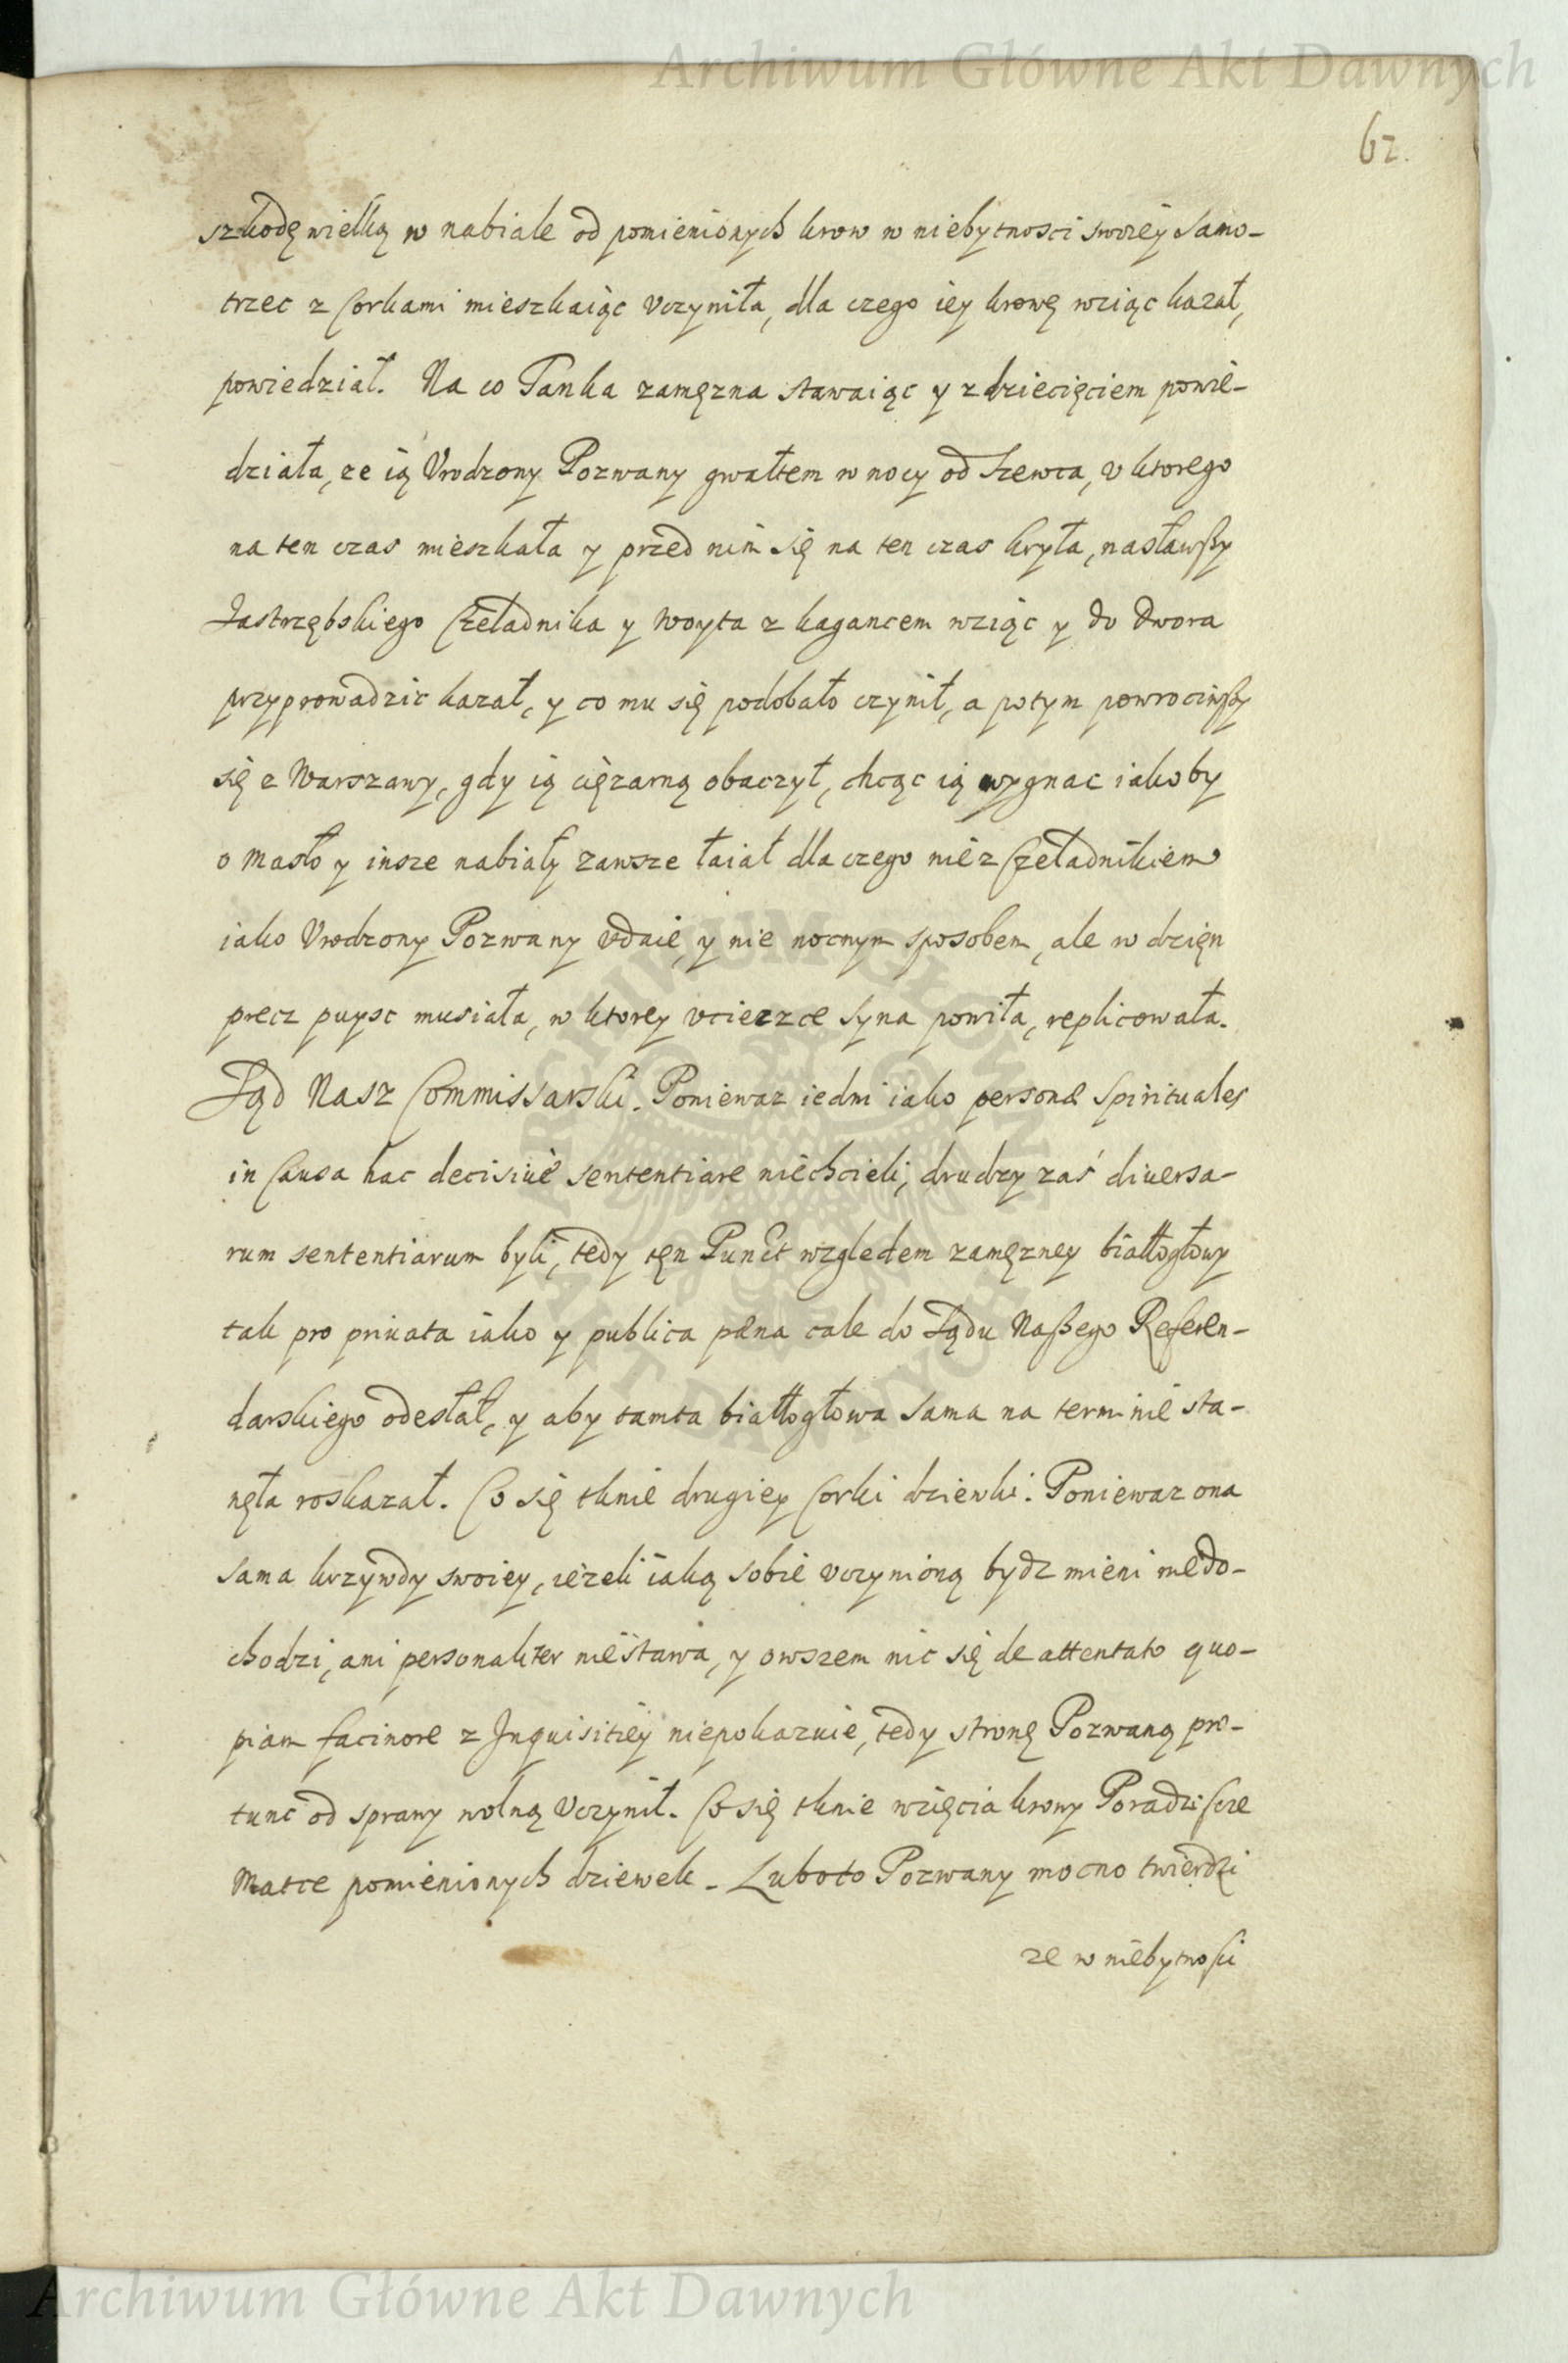 Archiwum Główne Akt Dawnych
62.
szkodę wielką w nabiale od pomienionych krow w niebytnosci swoiey samo-
trzec z Corkami mieszkaiąc vczyniła, dla czego iey krowę wziąc kazał,
powiedział. Na co Panka zamęzna stawaiąc y z dziecięciem powie-
działa, ze ią Vrodzony Pozwany gwałtem w nocy od Szewca, v ktorego
na ten czas mieszkała y przed nim się na ten czas kryła, nasławszy
Jastrzębskiego Czeladnika y Woyta z kagancem wziąc y do dwora
przyprowadzic kazał, y co mu się podobało czynił, a potym powrociwszy
się z Warszawy, gdy ią cięzarną obaczył, chcąc ią wygnac iakoby
o masło y insze nabiały zawsze łaiał dla czego nie z Czeladnikiem
iako Vrodzony Pozwany vdaie, y nie nocnym sposobem, ale w dzięn
precz puysc musiała, w ktorey vcieczce syna powiła, replicowała.
Sąd Nasz Commissarski. Poniewaz iedni iako personæ Spirituales
in Causa hac decisiuè sententiare niechcieli, drudzy zaś diuersa-
rum sententiarum byli, tedy tęn Punct względem zamęzney białłogłowy
tak pro priuata iako y publica pœna cale do Sądu Naszego Referen-
darskiego odesłał, y aby tamta białłogłowa sama na terminie sta-
nęła roskazał. Co się tknie drugiey Corki dziewki. Poniewaz ona
sama krzywdy swoiey, iezeli iaką sobie vczynioną bydz mieni niedo-
chodzi, ani personaliter niestawa, y owszem nic się de attentato quo-
piam facinore z Jnquisitiey niepokazuie, tedy stronę Pozwaną pro-
tunc od sprawy wolną vczynił. Co się tknie wzięcia krowy Poradzisce
Matce pomienionych dziewek. Luboto Pozwany mocno twierdzi
ze w niebytnosci
Archiwum Główne Akt Dawnych